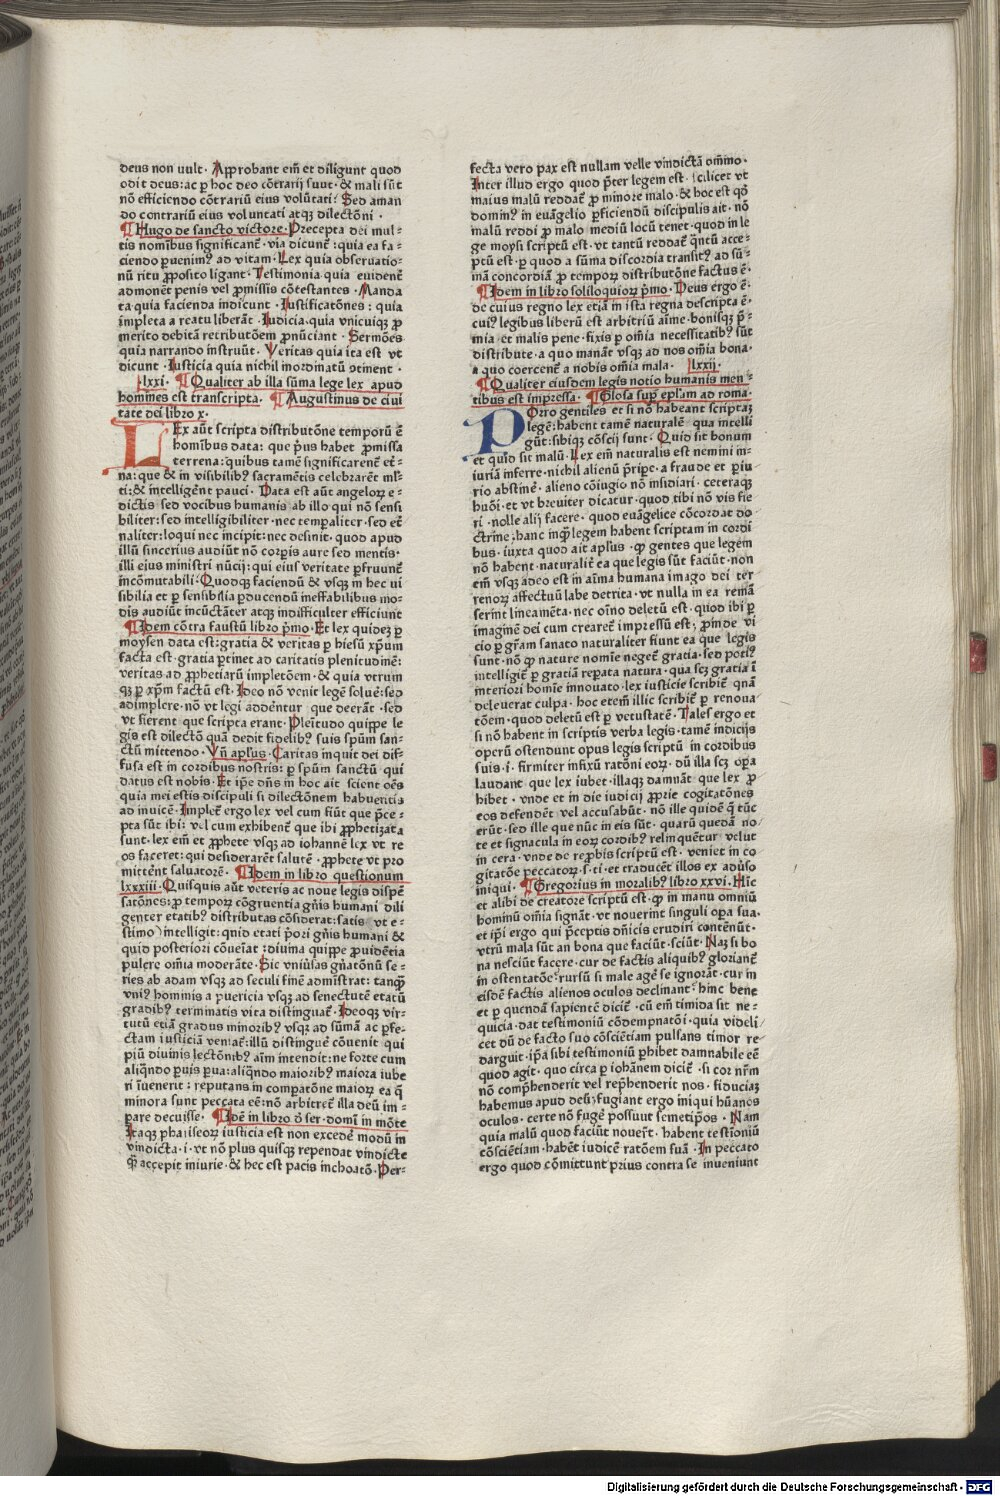 deus non uult· Approbant em̄ et diligunt quod
odit deus: ac ꝑ hoc deo cōtrarij suut· & mali sūt
nō efficiendo cōtrariū eius volūtati: Sed aman
do contrariū eius voluntati atqꝫ dilectōni ·
¶ Hugo de sancto victore· Precepta dei mul-
tis nominibus significant̄· via dicunt̄: quia ea fa-
ciendo ꝑuenim9 ad vitam· Lex quia obseruatio-
nū ritu ꝓposito ligant· Testimonia quia euident̄
admonēt penis vel ꝓmissis cōtestantes · Manda
ta quia facienda indicunt · Iustificatōnes : quia
impleta a reatu liberāt· Iudicia· quia vnicuiqꝫ ꝓ
merito debitā retributōem ꝓnūciant · Sermōes
quia narrando instruūt· Veritas quia ita est vt
dicunt · Iusticia quia nichil inordinatū ↄtinent ·
lxxi· ¶ Qualiter ab illa sūma lege lex apud
homines est transcripta· ¶ Augustinus de ciui
tate dei libro x·
LEx aūt scripta distributōne temporū ē
hominibus data: que p̄us habet ꝓmissa
terrena: quibus tamē significarent̄ et̄-
na: que & in visibilib9 sacramētis celebrarēt ml̄-
ti: & intelligēt pauci· Data est aūt angeloꝝ e-
dictis sed vocibus humanis ab illo qui nō sensi
biliter: sed intelligibiliter · nec temꝑaliter· sed et̄
naliter: loqui nec incipit: nec desinit· quod apud
illū sincerius audiūt nō corꝑis aure sed mentis·
illi eius ministri nūcij: qui eius veritate ꝑfruunt̄
incōmutabili: Quodqꝫ faciendū & vsqꝫ in hec ui
sibilia et ꝑ sensibilia ꝓducendū ineffabilibus mo-
dis audiūt incūctāter atqꝫ indifficulter efficiunt
¶ Idem cōtra faustū libro pͥmo· Et lex quideꝫ ꝑ
moysen data est: gratia & veritas ꝑ hiesū xp̄um
facta est· gratia ꝑtinet ad caritatis plenitudinē:
veritas ad ꝓphetiarū impletōem· & quia vtrum
qꝫ ꝑ xp̄m factū est· Ideo nō venit legē soluē: sed
adimplere· nō vt legi addēntur que deerāt · sed
vt fierent que scripta erant· Plēitudo quippe le
gis est dilectō quā dedit fidelib9 suis spūm san-
ctū mittendo · Vn̄ apl̄us · Caritas inquit dei dif-
fusa est in cordibus nostris: ꝑ spūm sanctū qui
datus est nobis· Et ip̄e dn̄s in hoc ait scient oēs
quia mei estis discipuli si dilectōnem habueritis
ad inuicē· Implet̄ ergo lex vel cum fiūt que p̄ce-
pta sūt ibi: vel cum exhibent̄ que ibi ꝓphetizata
sunt· lex em̄ et ꝓphete vsqꝫ ad iohannē lex vt re
os faceret: qui desiderarēt salutē · ꝓphete vt pro
mittēnt saluatorē· ¶ Idem in libro questionum
lxxxiii· Quisquis aūt veteris ac noue legis dispē
satōnes: ꝓ tempoꝝ cōgruentia gn̄is humani dili
genter etatib9 distributas cōsiderat: satis vt e-
stimo intelligit: quid etati p̄ori gn̄is humani &
quid posteriori cōueīat: diuina quippe ꝓuidētia
pulcre om̄ia moderāte· Sic vniūsas gn̄atōnū se-
ries ab adam vsqꝫ ad seculi finē admīstrat: tanqꝫ
vni9 hominis a puericia vsqꝫ ad senectutē etatū
gradib9 terminatis vita distinguat̄· Ideoqꝫ vir-
tutū etiā gradus minorib9 vsqꝫ ad sūmā ac ꝑfe-
ctam iusticiā veniat̄: illū distinguē cōuenit qui
piū diuinis lectōnib9 aīm intendit: ne forte cum
aliqn̄do ꝑuis ꝑua: aliqn̄do maiorib9 maiora iube
ri īuenerit: reputans in compatōne maioꝝ ea qͥ
minora sunt peccata eē: nō arbitret̄ illa deū im-
pare decuisse· ¶ Idē in libro d̄ ser· domī in mōte
Itaqꝫ pharijseoꝝ iusticia est non excedē modū in
vindicta· i· vt nō plus quisqꝫ rependat vindicte
qͣ̄ accepit iniurie· & hec est pacis inchoatō· Per-
fecta vero pax est nullam velle vindictā om̄ino·
Inter illud ergo quod p̄ter legem est· scilicet vt
maius malū reddat̄ ꝓ minore malo· & hoc est qd̄
domin9 in euāgelio ꝑficiendū discipulis ait· nō
malū reddi ꝓ malo mediū locū tenet· quod in le
ge moysi scriptū est· vt tantū reddat̄ qͣntū acce-
ptū est· ꝑ quod a sūma discordia transit9 ad sū-
mā concordiā ꝓ tempoꝝ distributōne factus ē·
¶ Idem in libro soliloquioꝝ pͥmo· Deus ergo ē·
de cuius regno lex etiā in ista regna descripta ē·
cui9 legibus liberū est arbitriū aīme· bonisqꝫ p̄-
mia et malis pene· fixis ꝑ om̄ia necessitatib9 sūt
distribute· a quo manāt vsqꝫ ad nos om̄ia bona·
a quo coercent̄ a nobis om̄ia mala· lxxij·
¶ Qualiter eiusdem legis notio humanis men-
tibus est impressa· ¶ Glosa sup̄ epl̄am ad roma·
POrro gentiles et si nō habeant scriptaꝫ
legē: habent tamē naturalē qua intelli
gūt: sibiqꝫ cōscij sunt· Quid sit bonum
et quid sit malū· Lex em̄ naturalis est nemini in-
iuriā inferre· nichil alienū p̄ripe· a fraude et ꝑiu-
rio abstinē· alieno cōiugio nō insidiari· ceteraqꝫ
huōi· et vt breuiter dicatur· quod tibi nō vis fie
ri · nolle alij facere· quod euāgelice cōcordat do-
ctrine, hanc inqͣ̄ legem habent scriptam in cordi
bus· iuxta quod ait apl̄us· ꝙ gentes que legem
nō habent naturalit̄ ea que legis sūt faciūt· non
em̄ vsqꝫ adeo est in aīma humana imago dei ter
renoꝝ affectuū labe detrita· vt nulla in ea remā
serint lineamēta· nec oīno deletū est· quod ibi ꝑ
imaginē dei cum crearet̄ impressū est, ꝓinde vi
cio ꝑ gr̄am sanato naturaliter fiunt ea que legis
sunt· nō ꝙ nature nomīe neget̄ gratia· sed poti9
intelligit̄ ꝑ gratiā reꝑata natura· qua scꝫ gratia ī
interiori homīe innouato· lex iusticie scribit̄ qnā
deleuerat culpa· hoc etem̄ illic scribit̄ ꝑ renoua
tōem· quod deletū est ꝑ vetustatē· Tales ergo et
si nō habent in scriptis verba legis· tamē indicijs
operū ostendunt opus legis scriptū in cordibus
suis· i· firmiter infixū ratōni eoꝝ· dū illa scꝫ oꝑa
laudant que lex iubet· illaqꝫ damnāt que lex ꝓ
hibet· vnde et in die iudicij ꝓprie cogitatōnes
eos defendēt vel accusabūt· nō ille quidē qͥ tūc
erūt· sed ille que nūc in eis sūt· quarū quedā no
te et signacula in eoꝝ cordib9 relinquētur velut
in cera· vnde de rep̄bis scriptū est· veniet in co
gitatōe peccatoꝝ· s· ti· et traducēt illos ex aduso
iniqui· ¶ Gregorius in moralib9 libro xxvi· Hic
et alibi de creatore scriptū est· ꝙ in manu omniū
hominū om̄ia signāt· vt nouerint singuli oꝑa sua·
et ip̄i ergo qui p̄ceptis dn̄icis erudiri contēnūt·
vtrū mala sūt an bona que faciūt· sciūt· Naꝫ si bo
na nesciūt facere· cur de factis aliquib9 gloriant̄
in ostentatōe: rursū si male agē se ignorāt· cur in
eisdē factis alienos oculos declinant: hinc bene
et ꝑ quendā sapientē dicit̄ · cū em̄ timida sit ne-
quicia· dat testimoniū cōdempnatōi· quia videli
cet dū de facto suo cōsciētiam pulsans timor re
darguit· ip̄a sibi testimoniū ꝑhibet damnabile eē
quod agit· quo circa ꝑ iohānem dicit̄ · si cor nr̄m
nō comp̄henderit vel rep̄henderit nos· fiduciaꝫ
habemus apud deū, fugiant ergo iniqui hūanos
oculos· certe nō fugē possuut semetip̄os · Nam
quia malū quod faciūt nouer̄t· habent testioniū
cōsciētiam· habēt iudicē ratōem suā· In peccato
ergo quod cōmittunt prius contra se inueniunt
Digitalisierung gefördert durch die Deutsche Forschungsgemeinschaft · DFG